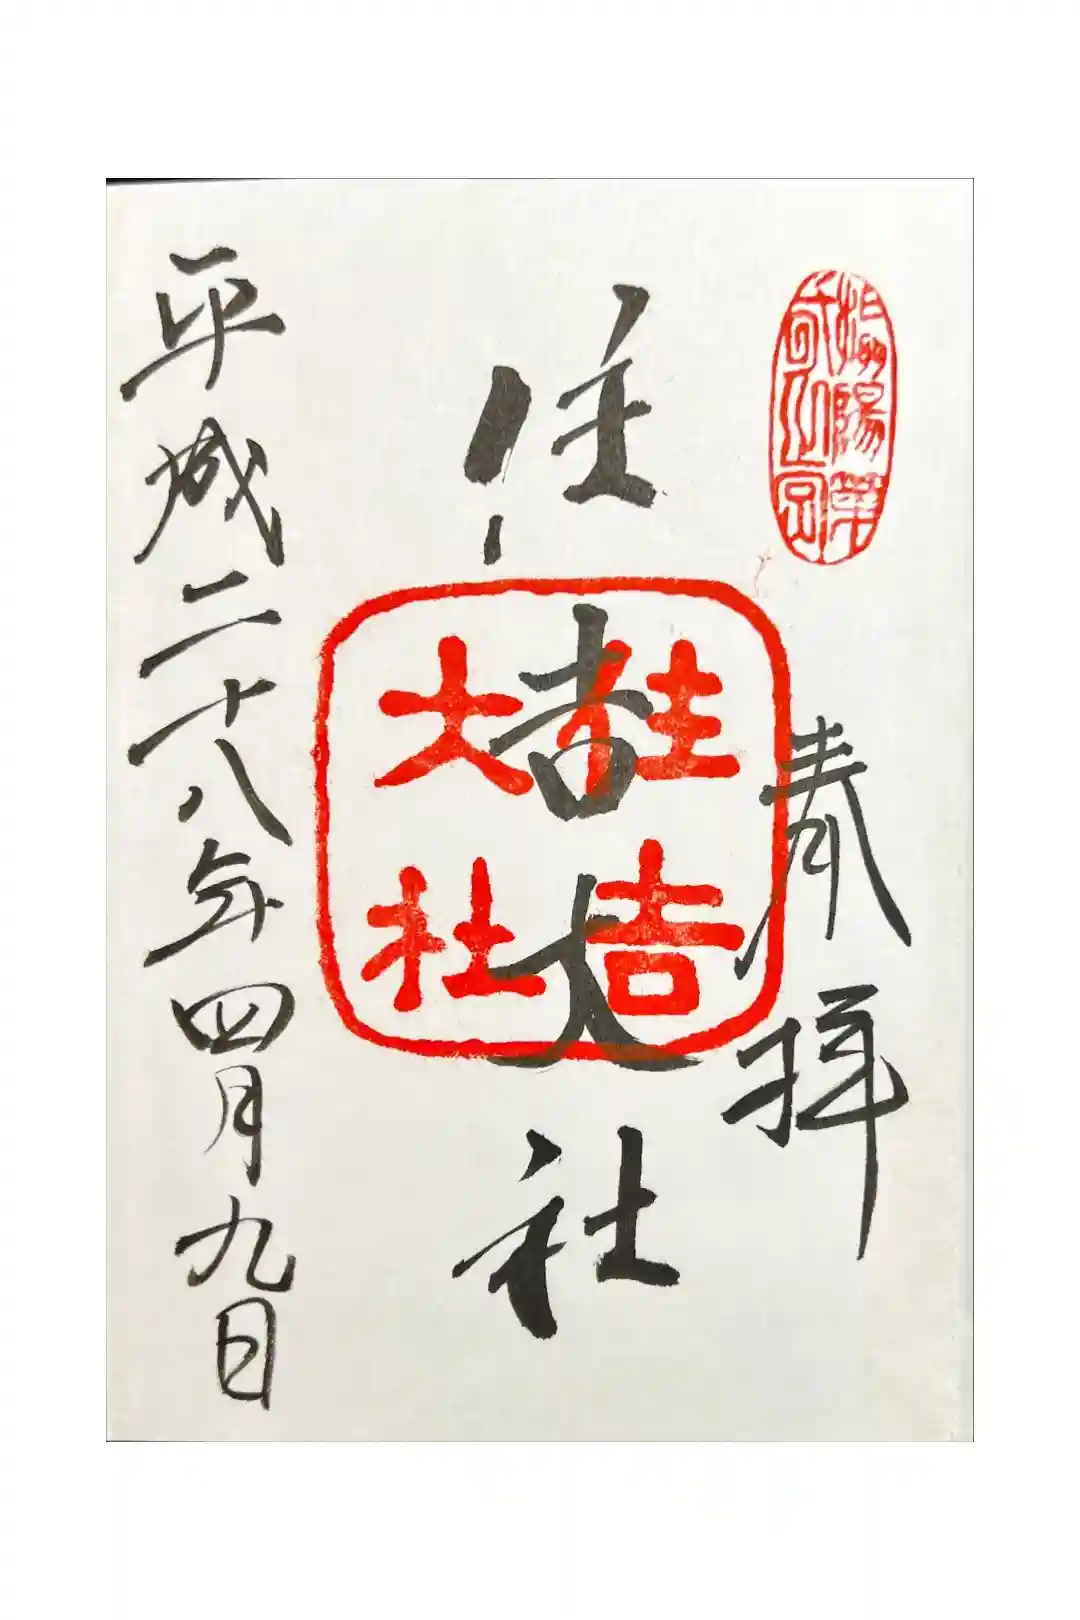 奉拝
住吉大社
住吉
大社
平成二十八年四月九日